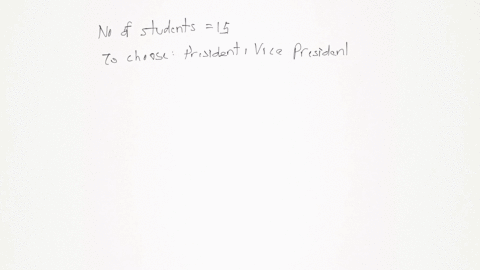 No of students = 15
To choose: President, Vice President